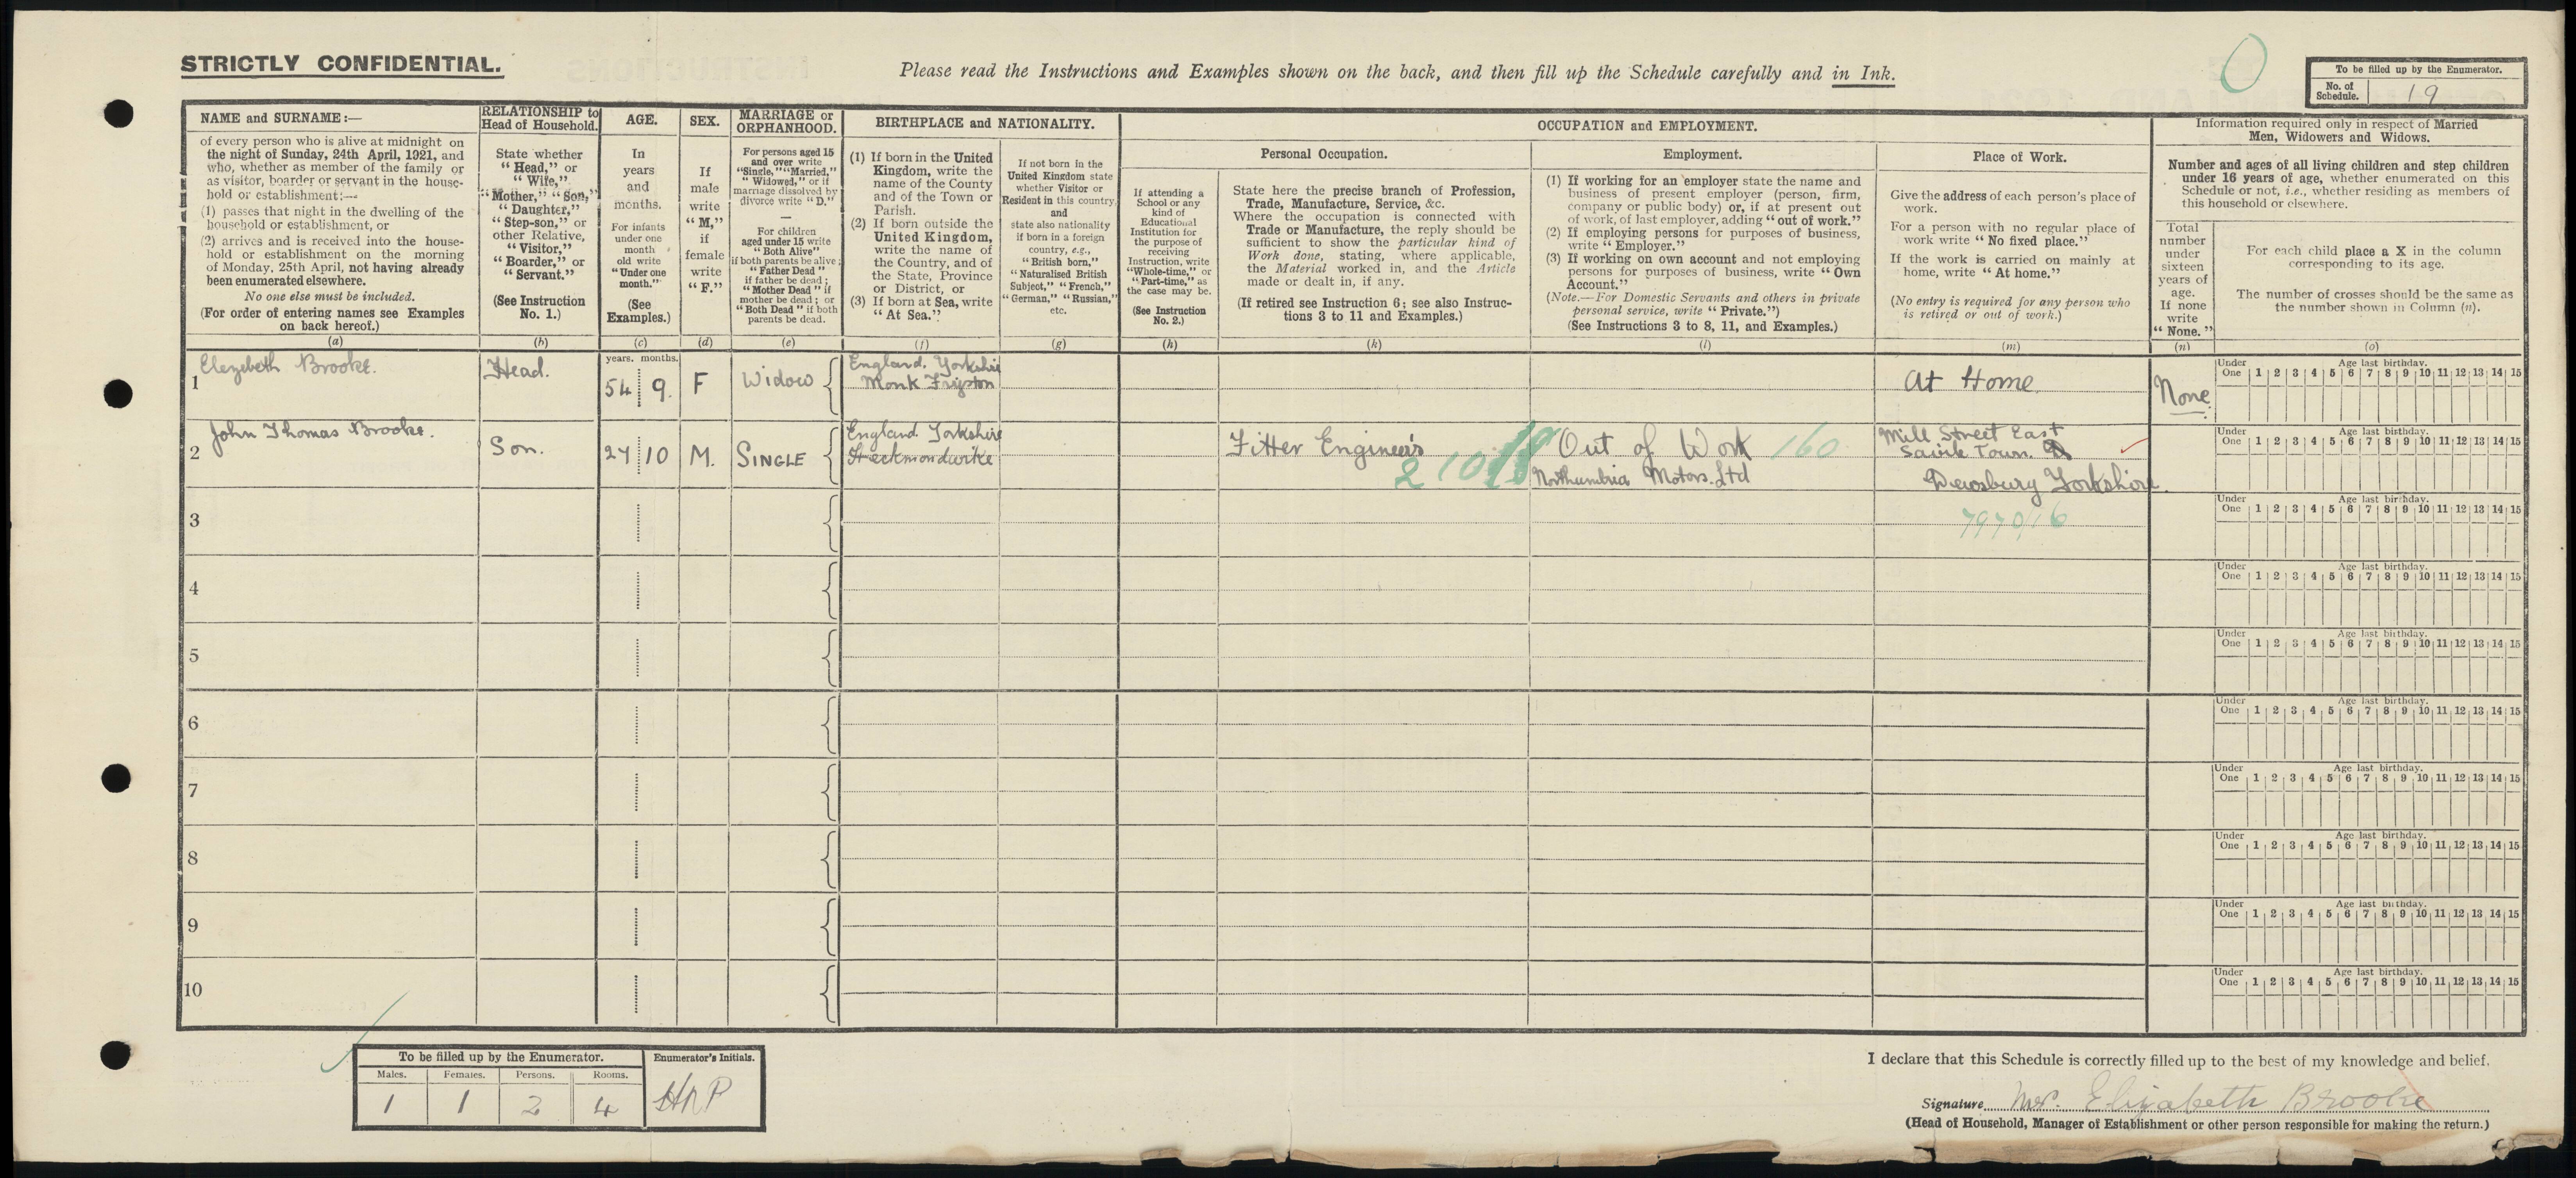 STRICTLY CONFIDENTIAL.
Please read the Instructions and Examples shown on the back, and then fill up the Schedule carefully and in Ink.
0
To be filled up by the Enumerator.
No. of Schedule. 19
NAME and SURNAME:—
of every person who is alive at midnight on
the night of Sunday, 24th April, 1921, and
who, whether as member of the family or
as visitor, boarder or servant in the house-
hold or establishment:—
(1) passes that night in the dwelling of the
household or establishment, or
(2) arrives and is received into the house-
hold or establishment on the morning
of Monday, 25th April, not having already
been enumerated elsewhere.
No one else must be included.
(For order of entering names see Examples
on back hereof.)
(a)
RELATIONSHIP to
Head of Household.
State whether
"Head," or
"Wife,"
"Mother," "Son,"
"Daughter,"
"Step-son," or
other Relative,
"Visitor,"
"Boarder," or
"Servant."
(See Instruction
No. 1.)
(b)
AGE.
In
years
and
months.
For infants
under one
month
old write
"Under one
month."
(See
Examples.)
(c)
SEX.
If
male
write
"M,"
if
female
write
"F."
(d)
MARRIAGE or
ORPHANHOOD.
For persons aged 15
and over write
"Single," "Married,"
"Widowed," or if
marriage dissolved by
divorce write "D."
—
For children
aged under 15 write
"Both Alive"
if both parents be alive;
"Father Dead"
if father be dead;
"Mother Dead" if
mother be dead; or
"Both Dead" if both
parents be dead.
(e)
BIRTHPLACE and NATIONALITY.
(1) If born in the United
Kingdom, write the
name of the County
and of the Town or
Parish.
(2) If born outside the
United Kingdom,
write the name of
the Country, and of
the State, Province
or District, or
(3) If born at Sea, write
"At Sea."
(f)
If not born in the
United Kingdom state
whether Visitor or
Resident in this country,
and
state also nationality
if born in a foreign
country, e.g.,
"British born,"
"Naturalised British
Subject," "French,"
"German," "Russian,"
etc.
(g)
OCCUPATION and EMPLOYMENT.
If attending a
School or any
kind of
Educational
Institution for
the purpose of
receiving
Instruction, write
"Whole-time," or
"Part-time," as
the case may be.
(See Instruction
No. 2.)
(h)
Personal Occupation.
State here the precise branch of Profession,
Trade, Manufacture, Service, &c.
Where the occupation is connected with
Trade or Manufacture, the reply should be
sufficient to show the particular kind of
Work done, stating, where applicable,
the Material worked in, and the Article
made or dealt in, if any.
(If retired see Instruction 6; see also Instruc-
tions 3 to 11 and Examples.)
(k)
Employment.
(1) If working for an employer state the name and
business of present employer (person, firm,
company or public body) or, if at present out
of work, of last employer, adding "out of work."
(2) If employing persons for purposes of business,
write "Employer."
(3) If working on own account and not employing
persons for purposes of business, write "Own
Account."
(Note.—For Domestic Servants and others in private
personal service, write "Private.")
(See Instructions 3 to 8, 11, and Examples.)
(l)
Place of Work.
Give the address of each person's place of
work.
For a person with no regular place of
work write "No fixed place."
If the work is carried on mainly at
home, write "At home."
(No entry is required for any person who
is retired or out of work.)
(m)
Information required only in respect of Married
Men, Widowers and Widows.
Number and ages of all living children and step children
under 16 years of age, whether enumerated on this
Schedule or not, i.e., whether residing as members of
this household or elsewhere.
Total
number
under
sixteen
years of
age.
If none
write
"None."
(n)
For each child place a X in the column
corresponding to its age.
The number of crosses should be the same as
the number shown in Column (n).
(o)
years. months.
1 Elezebeth Brooke. Head. 54 9. F Widow England. Yorkshire
Monk Fryston At Home None.
Under One Age last birthday. 1 2 3 4 5 6 7 8 9 10 11 12 13 14 15
2 John Thomas Brooke. Son. 27 10 M. SINGLE England Yorkshire
Heckmondwike Fitter Engineers Out of Work 160
Northumbria Motors. Ltd
Mill Street East
Savile Town.
Dewsbury Yorkshire.
797016
Under One Age last birthday. 1 2 3 4 5 6 7 8 9 10 11 12 13 14 15
3
Under One Age last birthday. 1 2 3 4 5 6 7 8 9 10 11 12 13 14 15
4
Under One Age last birthday. 1 2 3 4 5 6 7 8 9 10 11 12 13 14 15
5
Under One Age last birthday. 1 2 3 4 5 6 7 8 9 10 11 12 13 14 15
6
Under One Age last birthday. 1 2 3 4 5 6 7 8 9 10 11 12 13 14 15
7
Under One Age last birthday. 1 2 3 4 5 6 7 8 9 10 11 12 13 14 15
8
Under One Age last birthday. 1 2 3 4 5 6 7 8 9 10 11 12 13 14 15
9
Under One Age last birthday. 1 2 3 4 5 6 7 8 9 10 11 12 13 14 15
10
Under One Age last birthday. 1 2 3 4 5 6 7 8 9 10 11 12 13 14 15
To be filled up by the Enumerator. Enumerator's Initials.
Males. Females. Persons. Rooms.
1 1 2 4 HRP
I declare that this Schedule is correctly filled up to the best of my knowledge and belief.
Signature Mrs. Elizabeth Brooke
(Head of Household, Manager of Establishment or other person responsible for making the return.)